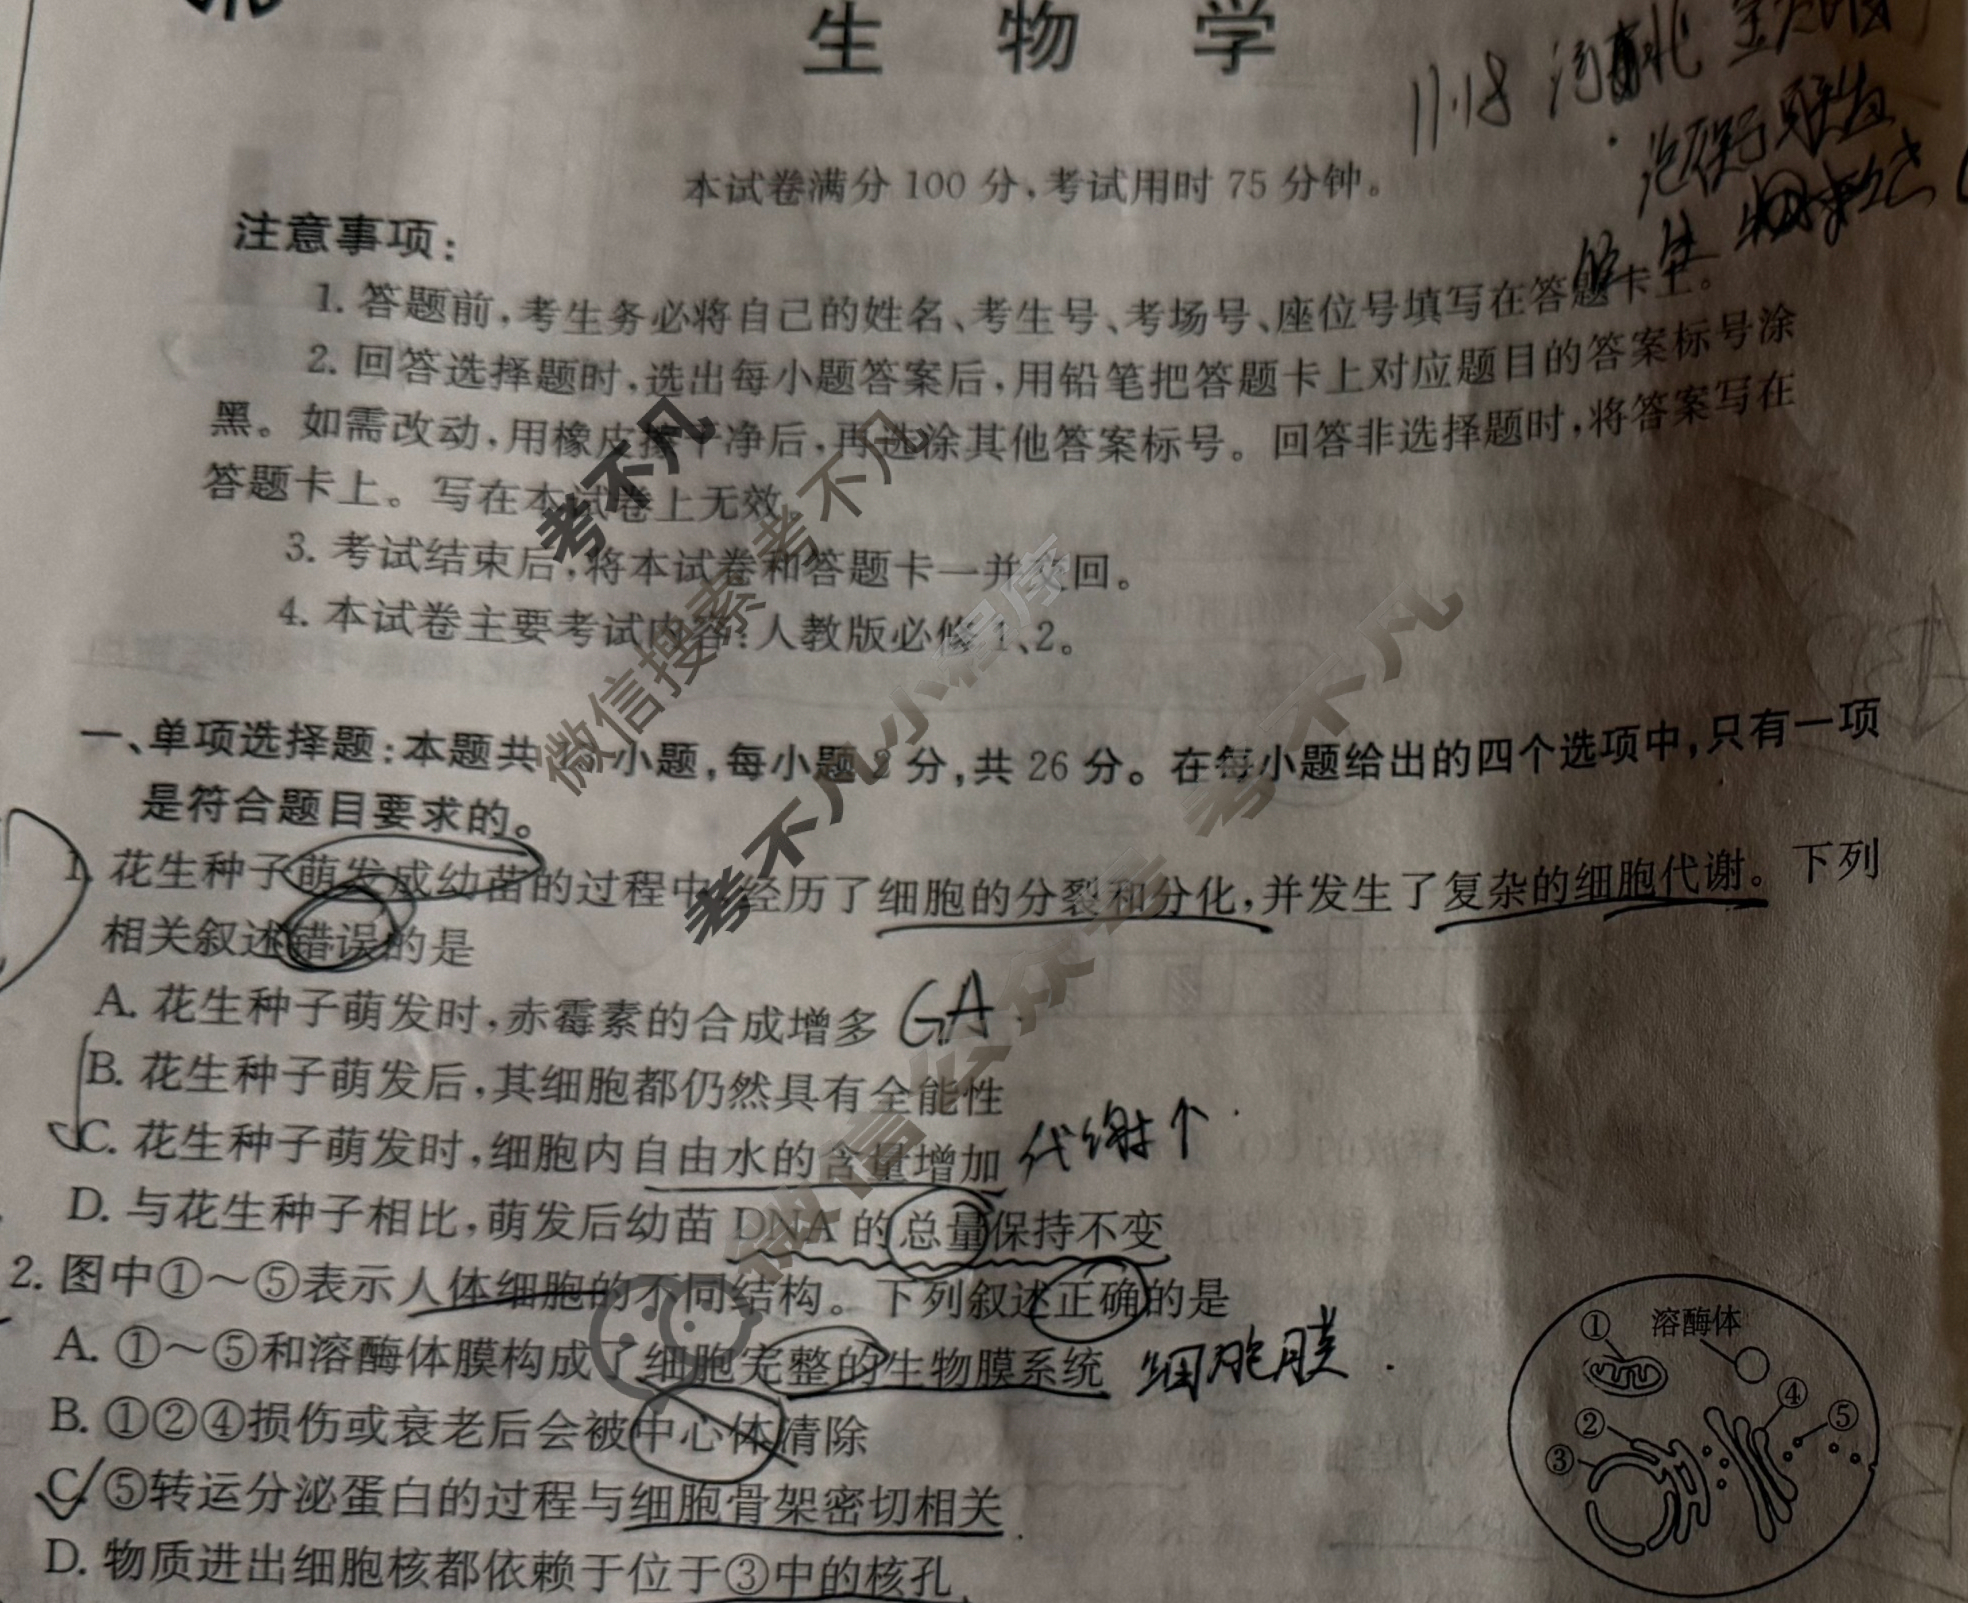 生物学
11.18 河北
本试卷满分100分,考试用时75分钟。
注意事项:
1. 答题前,考生务必将自己的姓名、考生号、考场号、座位号填写在答题卡上。
2. 回答选择题时,选出每小题答案后,用铅笔把答题卡上对应题目的答案标号涂
黑。如需改动,用橡皮擦干净后,再选涂其他答案标号。回答非选择题时,将答案写在
答题卡上。写在本试卷上无效。
3. 考试结束后,将本试卷和答题卡一并交回。
4. 本试卷主要考试内容:人教版必修1、2。
一、单项选择题:本题共 小题,每小题2分,共26分。在每小题给出的四个选项中,只有一项
是符合题目要求的。
1. 花生种子萌发成幼苗的过程中,经历了细胞的分裂和分化,并发生了复杂的细胞代谢。下列
相关叙述错误的是
A. 花生种子萌发时,赤霉素的合成增多 GA
B. 花生种子萌发后,其细胞都仍然具有全能性
C. 花生种子萌发时,细胞内自由水的含量增加 代谢↑
D. 与花生种子相比,萌发后幼苗DNA的总量保持不变
2. 图中①~⑤表示人体细胞的不同结构。下列叙述正确的是
A. ①~⑤和溶酶体膜构成了细胞完整的生物膜系统 细胞膜.
B. ①②④损伤或衰老后会被中心体清除
C. ⑤转运分泌蛋白的过程与细胞骨架密切相关
D. 物质进出细胞核都依赖于位于③中的核孔
① 溶酶体
④
② ⑤
③
考不凡
微信搜索 考不凡
考不凡小程序
微信公众号 考不凡